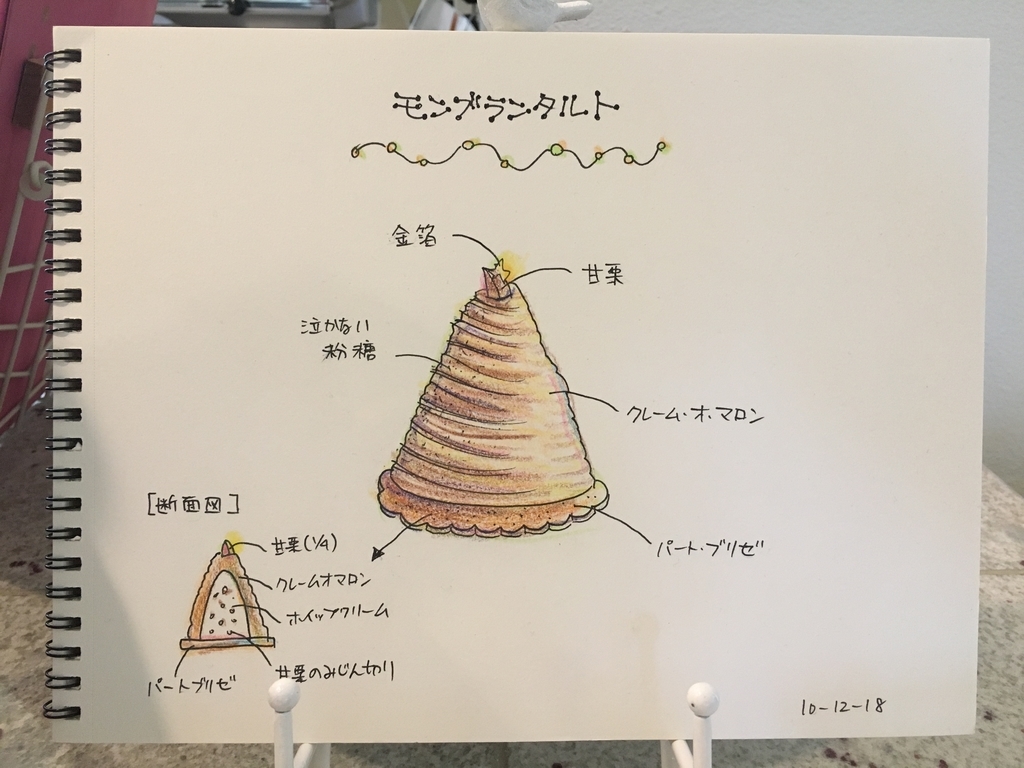 モンブランタルト
金箔
甘栗
泣かない
粉糖
クレーム・オ・マロン
パート・ブリゼ
[断面図]
甘栗(1/4)
クレームオマロン
ホイップクリーム
甘栗のみじん切り
パートブリゼ
10-12-18